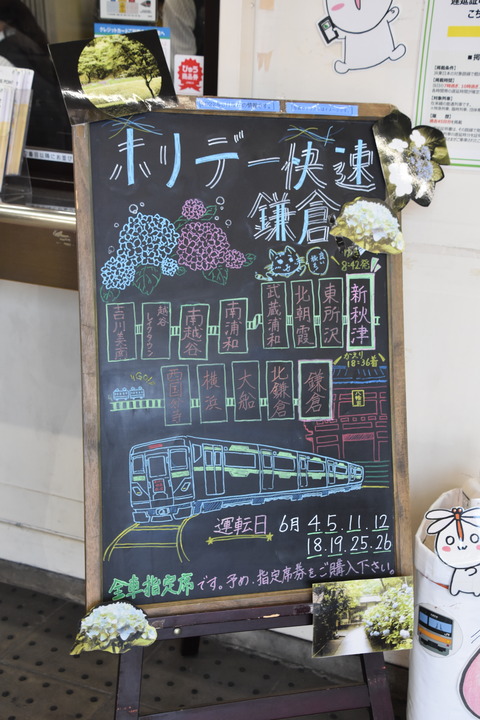 ホリデー快速
鎌倉
ゆき
8:42発
新秋津
東所沢
北朝霞
武蔵浦和
南浦和
南越谷
越谷レイクタウン
吉川美南
かえり
18:36着
鎌倉
北鎌倉
大船
横浜
西国分寺
運転日 6月 4.5.11.12
18.19.25.26
全車指定席です。予め、指定席券をご購入下さい。